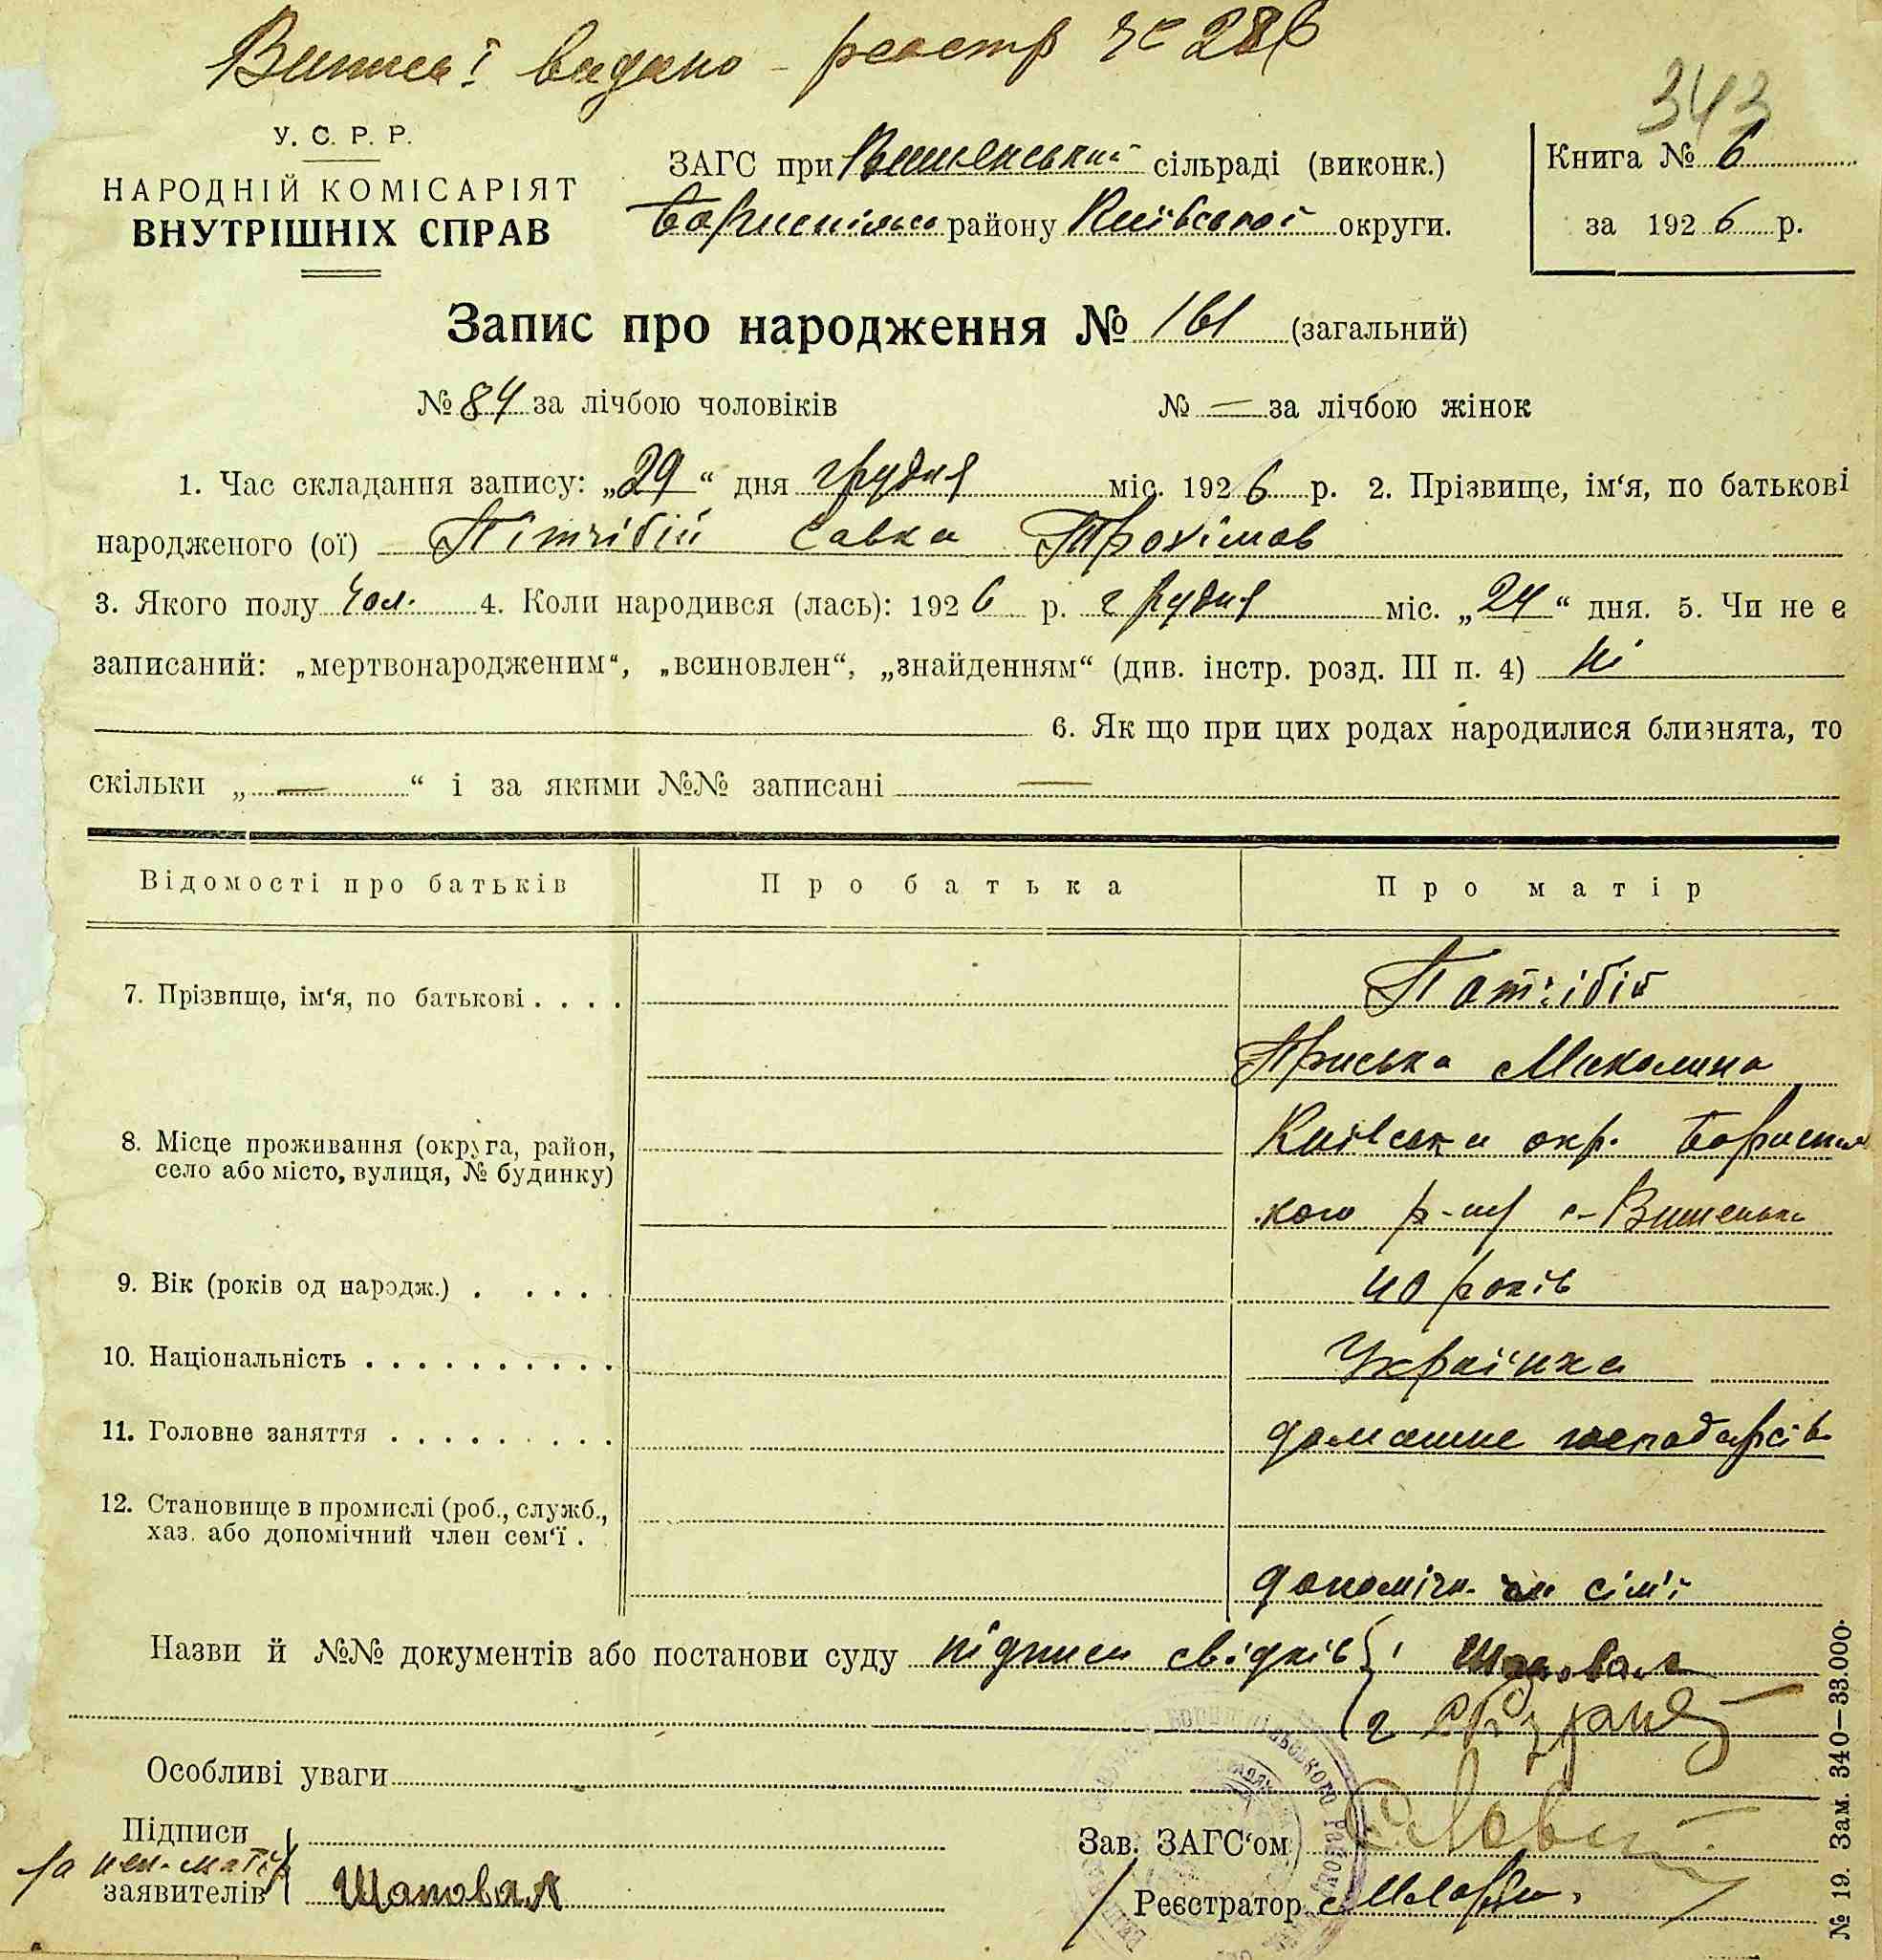 Виписі видано – реєстр № 286
343
У. С. Р. Р.
НАРОДНІЙ КОМІСАРІЯТ
ВНУТРІШНІХ СПРАВ
ЗАГС при сільраді (виконк.)
району Київської округи.
Книга № 6
за 1926 р.
Запис про народження № 161 (загальний)
№ 84 за лічбою чоловіків № — за лічбою жінок
1. Час складання запису: „29“ дня грудня міс. 1926 р. 2. Прізвище, ім‘я, по батькові
народженого (ої) Савка Трохимов
3. Якого полу чол. 4. Коли народився (лась): 1926 р. грудня міс. „24“ дня. 5. Чи не є
записаний: „мертвонародженим“, „всиновлен“, „знайденням“ (див. інстр. розд. III п. 4) ні
6. Як що при цих родах народилися близнята, то
скільки „—“ і за якими №№ записані —
Відомості про батьків Про батька Про матір
7. Прізвище, ім‘я, по батькові . . . .
Приська Миколина
8. Місце проживання (округа, район,
село або місто, вулиця, № будинку)
Київська окр.
кого р-ну с-Вишеньки
9. Вік (років од народж.) . . . . . 40 років
10. Національність . . . . . . . . . . Українка
11. Головне заняття . . . . . . . . . домашне
12. Становище в промислі (роб., служб.,
хаз. або допомічний член сем‘ї .
допоміч. чл сім'ї
Назви й №№ документів або постанови суду підписи свідків: Шаповал
Особливі уваги
Підписи
заявителів Шаповал
Зав. ЗАГС‘ом
Реєстратор
№ 19. Зам. 340—33.000.